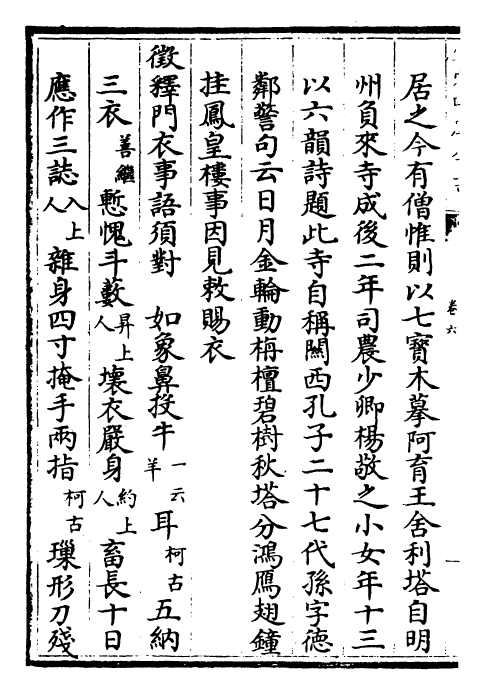 居之今有僧惟則以七寳木摹阿育王舍利塔自明
州負來寺成後二年司農少卿楊敬之小女年十三
以六韻詩題此寺自稱關西孔子二十七代孫字徳
鄰警句云日月金輪動栴檀碧樹秋塔分鴻鴈翅鐘
挂鳳皇樓事因見敕賜衣
徴釋門衣事語須對　如象鼻投牛一云羊耳柯古五納
三衣善繼慙愧斗藪昇上人壊衣嚴身約上人畜長十日
應作三誌入上人雜身四寸掩手兩指柯古瓅形刀殘
卷六
一